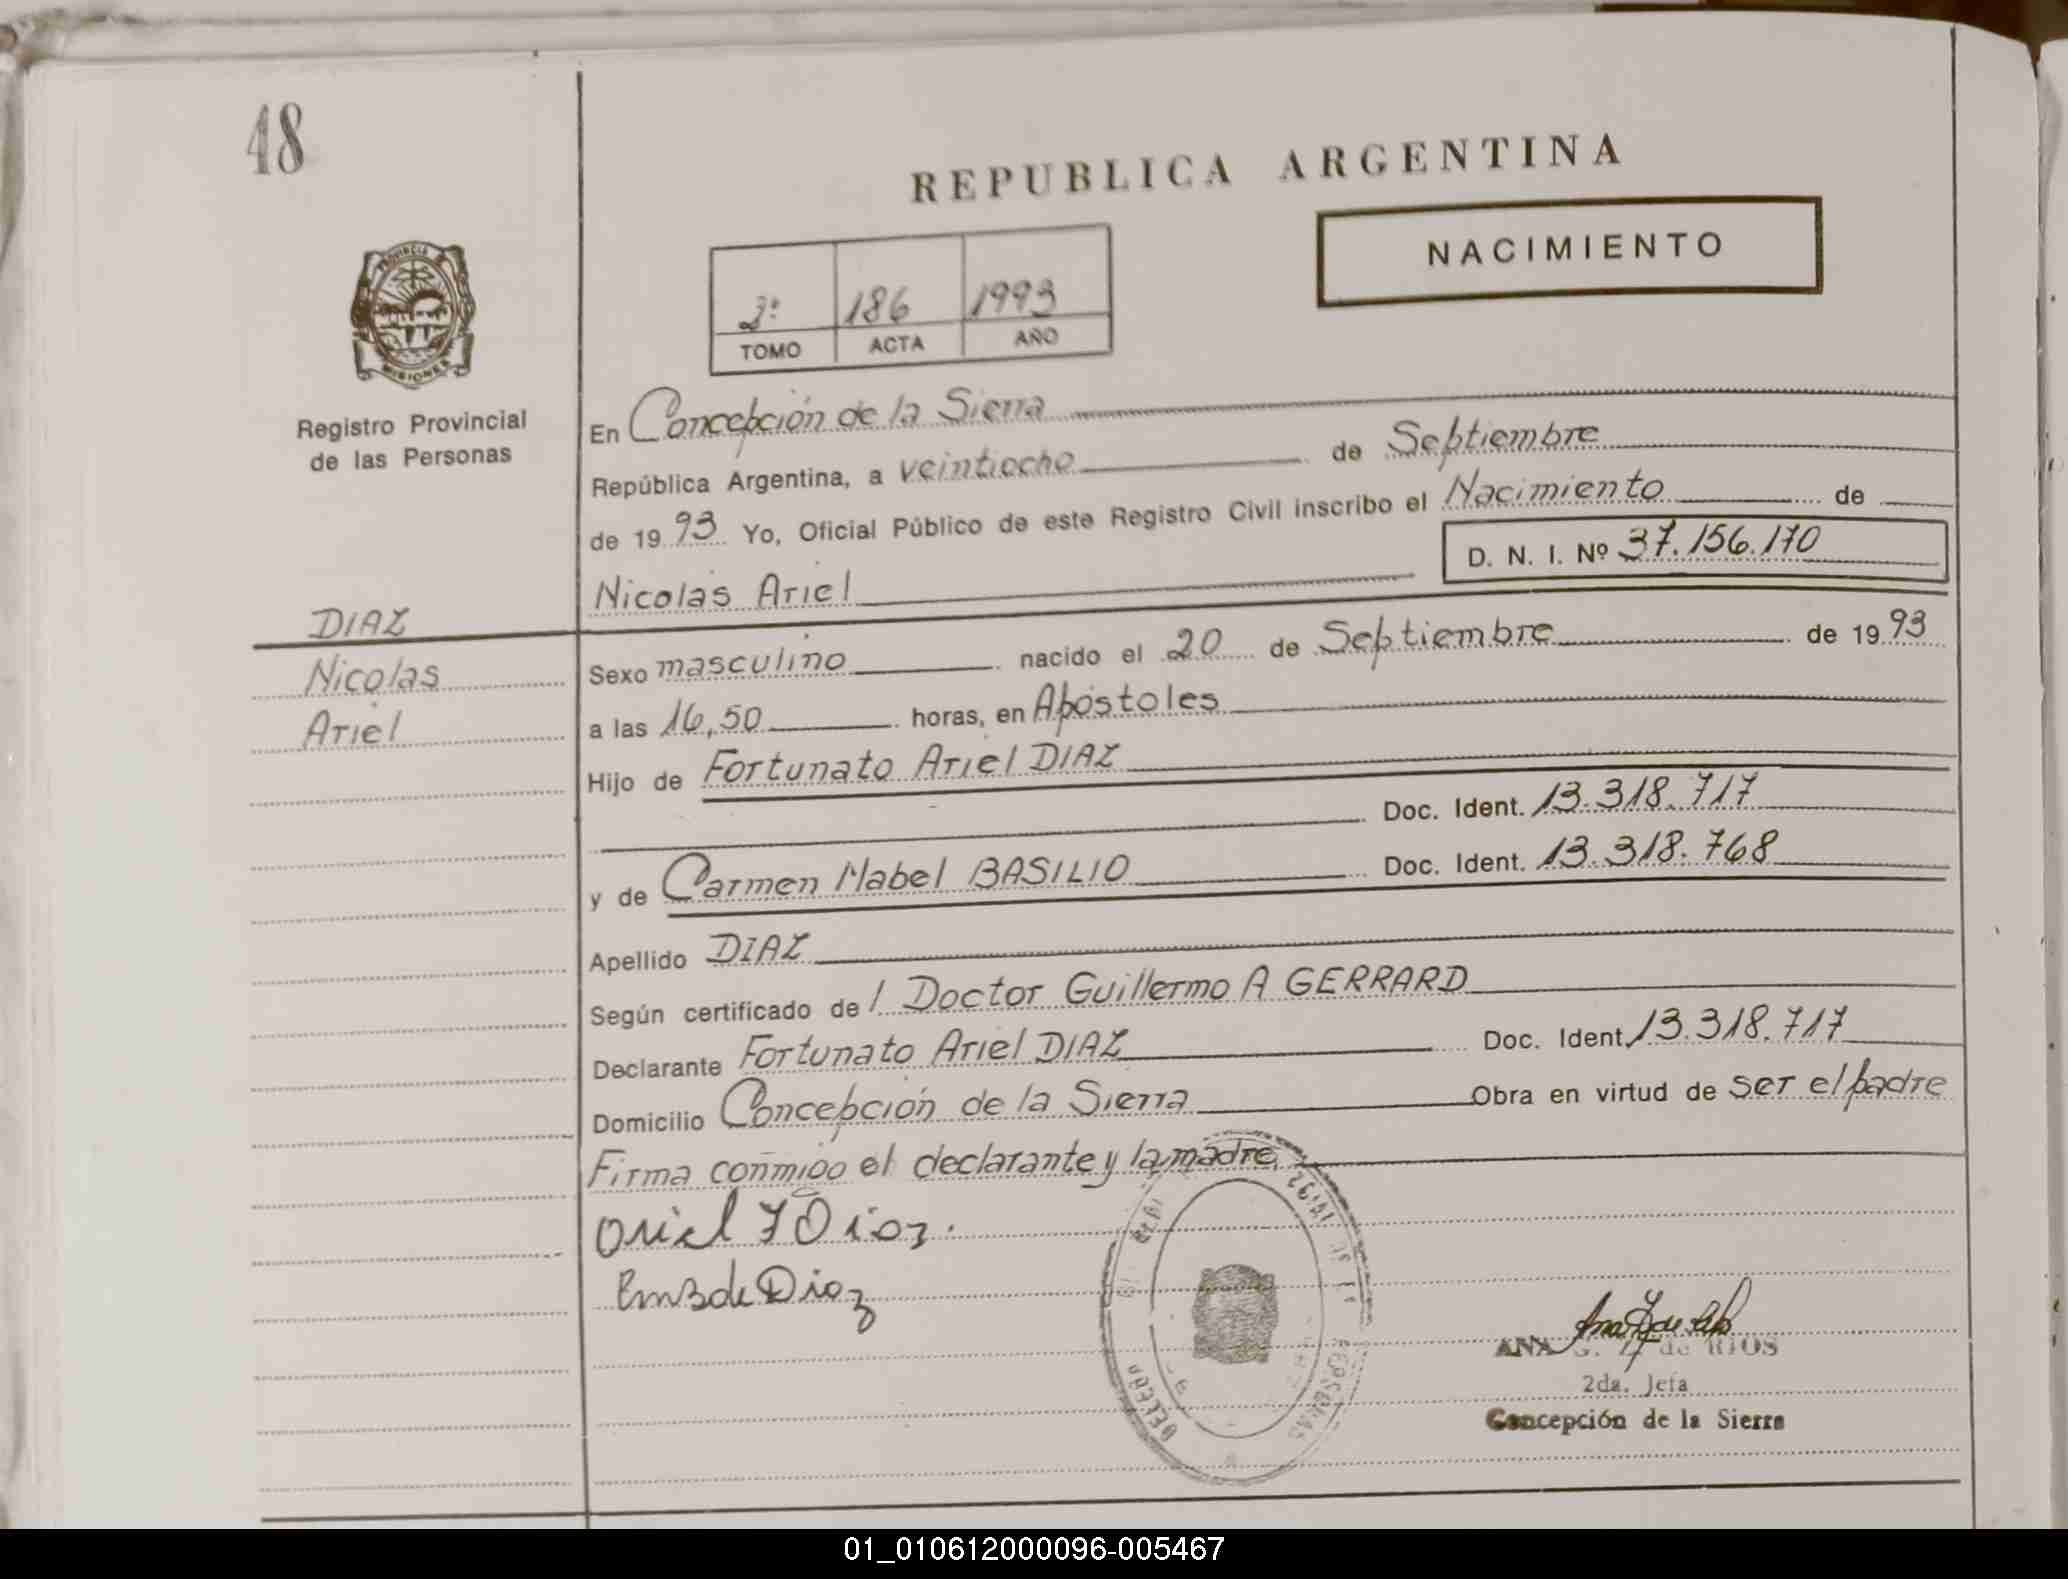 48
REPUBLICA ARGENTINA
NACIMIENTO
186 1993
TOMO ACTA AÑO
PROVINCIA DE
MISIONES
Registro Provincial
de las Personas
En Concepción de la Sierra
República Argentina, a veintiocho de Septiembre
de 1993 Yo, Oficial Público de este Registro Civil inscribo el Nacimiento de
D. N. I. Nº 37.156.170
Nicolas Ariel
DIAZ
Nicolas
Ariel
Sexo masculino nacido el 20 de Septiembre de 1993
a las 16,50 horas, en Apóstoles
Hijo de Fortunato Ariel DIAZ
Doc. Ident. 13.318.717
y de Carmen Mabel BASILIO Doc. Ident. 13.318.768
Apellido DIAZ
Según certificado del Doctor Guillermo A GERRARD
Declarante Fortunato Ariel DIAZ Doc. Ident. 13.318.717
Domicilio Concepción de la Sierra Obra en virtud de ser el padre
Firma conmigo el declarante y la madre
Ariel F Diaz.
de Diaz
ANA G. de RIOS
2da. Jefa
Concepción de la Sierra
01_010612000096-005467